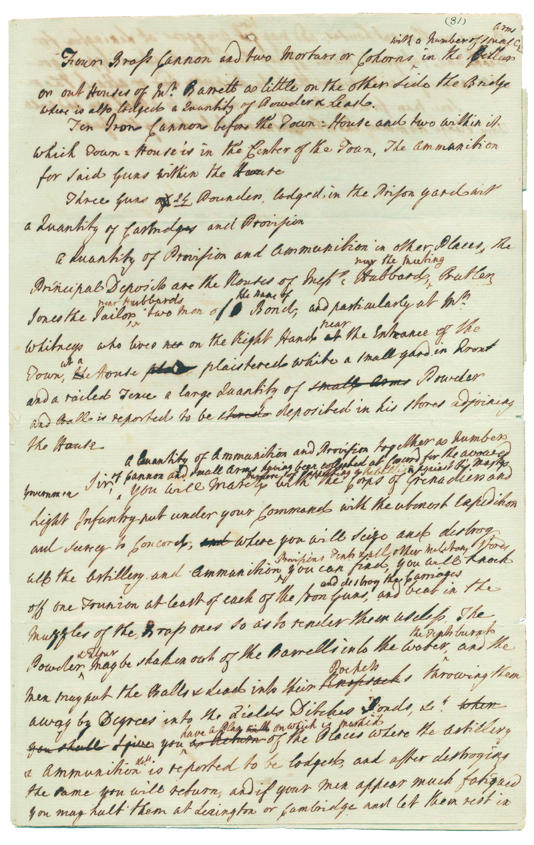 (81)
with a Number of small arms
Four Brass Cannon and two Mortars or Cohorns, in the Cellars
or out Houses of Mr. Barrett a little on the other side the Bridge
where is also lodged a Quantity of Powder & Lead.
Ten Iron Cannon before the Town-House and two within it
which Town-House is in the Center of the Town, The Ammunition
for said Guns within the House
Three Guns 24 Pounders, lodged in the Prison yard wit
a Quantity of Cartridges and Provision
A Quantity of Provision and Ammunition in other Places, the
near the meeting
Principal Deposits are the Houses of Messrs. Hubbard, Butler,
near Hubbards the name of
Jones the Tailor two men of Bond, and particularly at Mr.
near
Whitneys who lives on the Right Hand at the Entrance of the
Town, House plaistered white a small yard in Front
and a railed Fence a large Quantity of small Arms Powder
and Ball is reported to be stored deposited in his stores adjoining
the House
a Quantity of Ammunition and Provision together a Number
of Cannon and small Arms having been collected at for the avowed
purpose of a rebellion against His Majestys
Sir, You will March with the Corps of Grenadiers and
Light Infantry put under your Command with the utmost Expedition
and Secrecy to Concord, and where you will seize and destroy
Provisions Tents & all other military Stores
all the Artillery and Ammunition you can find, you will knock
and destroy the Carriages
off one Trunion at least of each of the Iron Guns, and beat in the
Muzzles of the Brass ones so as to render them useless. The
& Flour the Tents burnt
Powder may be shaken out of the Barrells into the Water, and the
Pockets
Men may put the Balls & Lead into their Knapsacks throwing them
away by Degrees into the Fields Ditches Ponds, &c. when
have a Plan on which is marked
you shall I give you a Return of the Places where the Artillery
& Ammunition &c. is reported to be lodged, and after destroying
the same you will return, and if your men appear much fatigued
you may halt them at Lexington or Cambridge and let them rest in